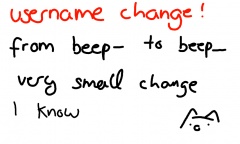 username change!
from beep- to beep_
very small change
I know